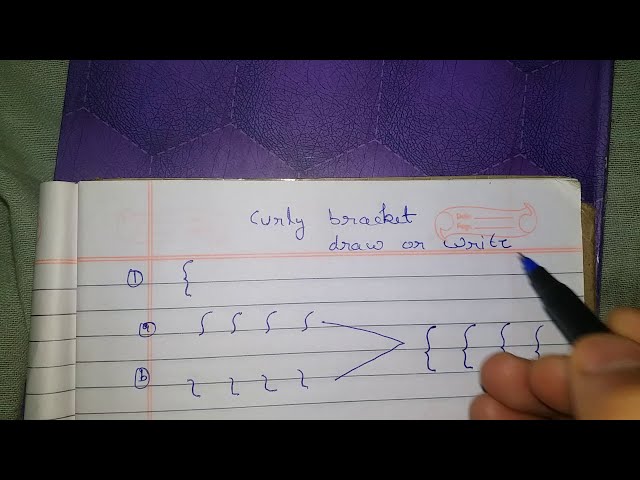 Curly bracket
draw or write
① {
ⓐ ʃ ʃ ʃ ʃ
ⓑ ʅ ʅ ʅ ʅ
{ { { {